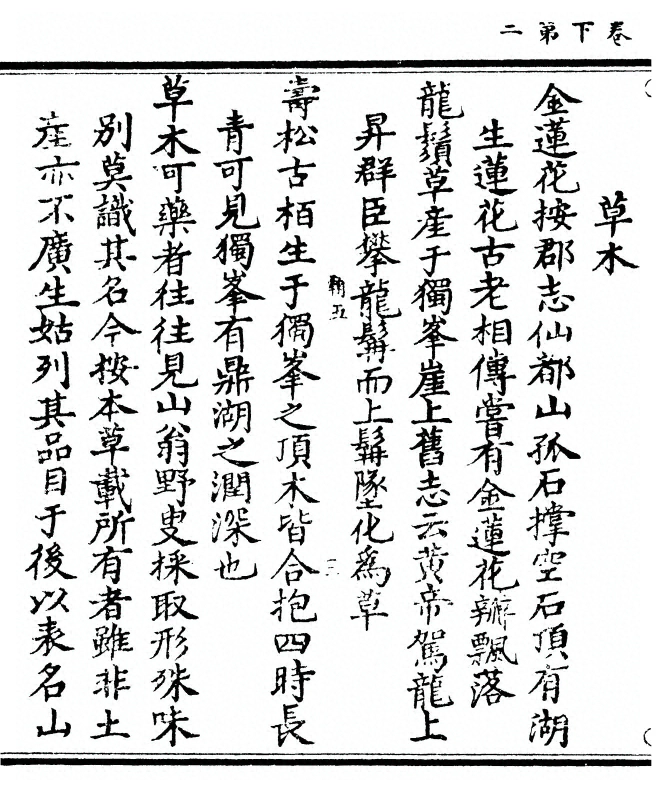 卷下第二
草木
金蓮花按郡志仙都山孤石撑空石頂有湖
生蓮花古老相傳嘗有金蓮花瓣飄落
龍鬚草産于獨峯崖上舊志云黄帝駕龍上
昇群臣攀龍髯而上髯墜化爲草
鞠五
三
壽松古栢生于獨峯之頂木皆合抱四時長
青可見獨峯有鼎湖之潤深也
草木可藥者往往見山翁野叟採取形殊味
别莫識其名今按本草載所有者雖非土
産亦不廣生姑列其品目于後以表名山